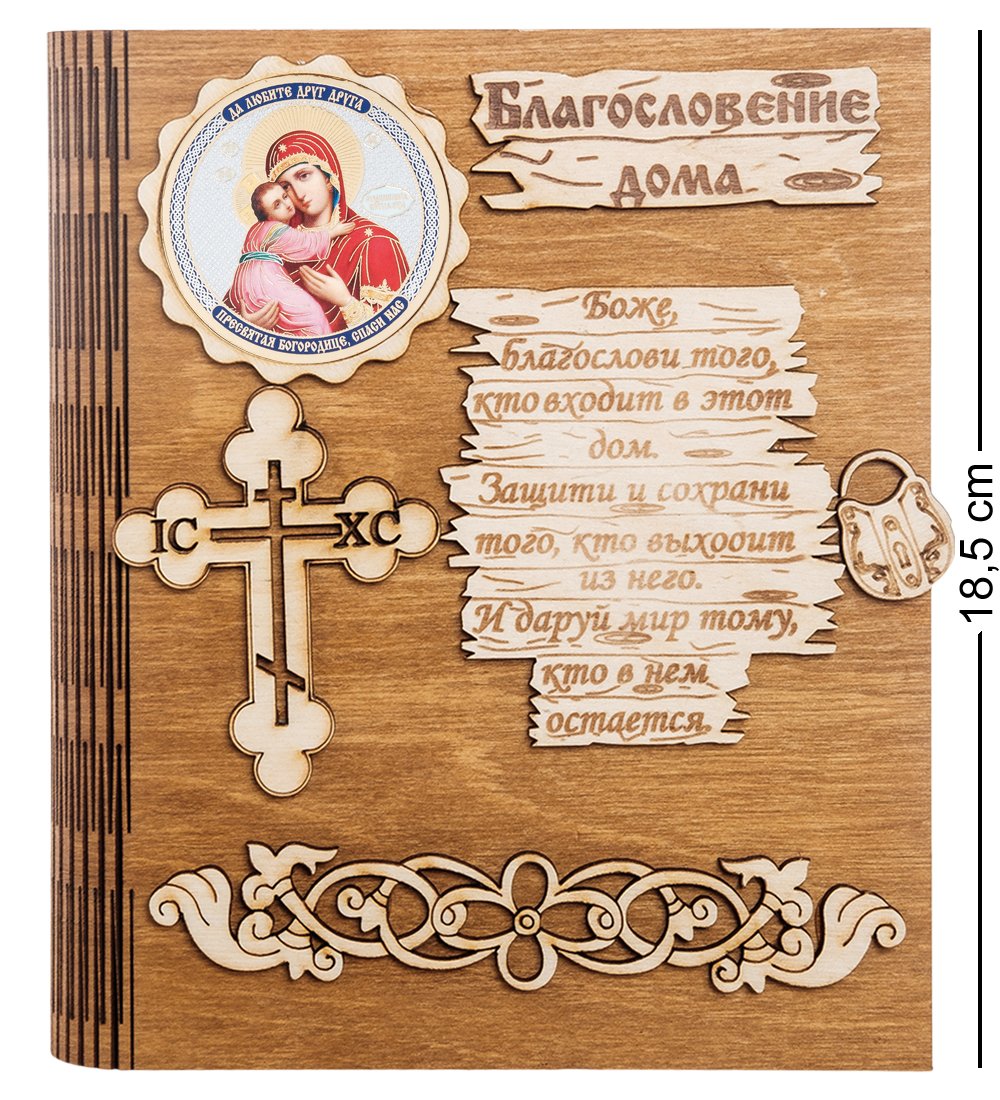 ДА ЛЮБИТЕ ДРУГ ДРУГА
ПРЕСВЯТАЯ БОГОРОДИЦЕ, СПАСИ НАС
БЛАГОСЛОВЕНИЕ
ДОМА
Боже,
благослови того,
кто входит в этот
дом.
Защити и сохрани
того, кто выходит
из него.
И даруй мир тому,
кто в нем
остается.
IC XC
18,5 cm